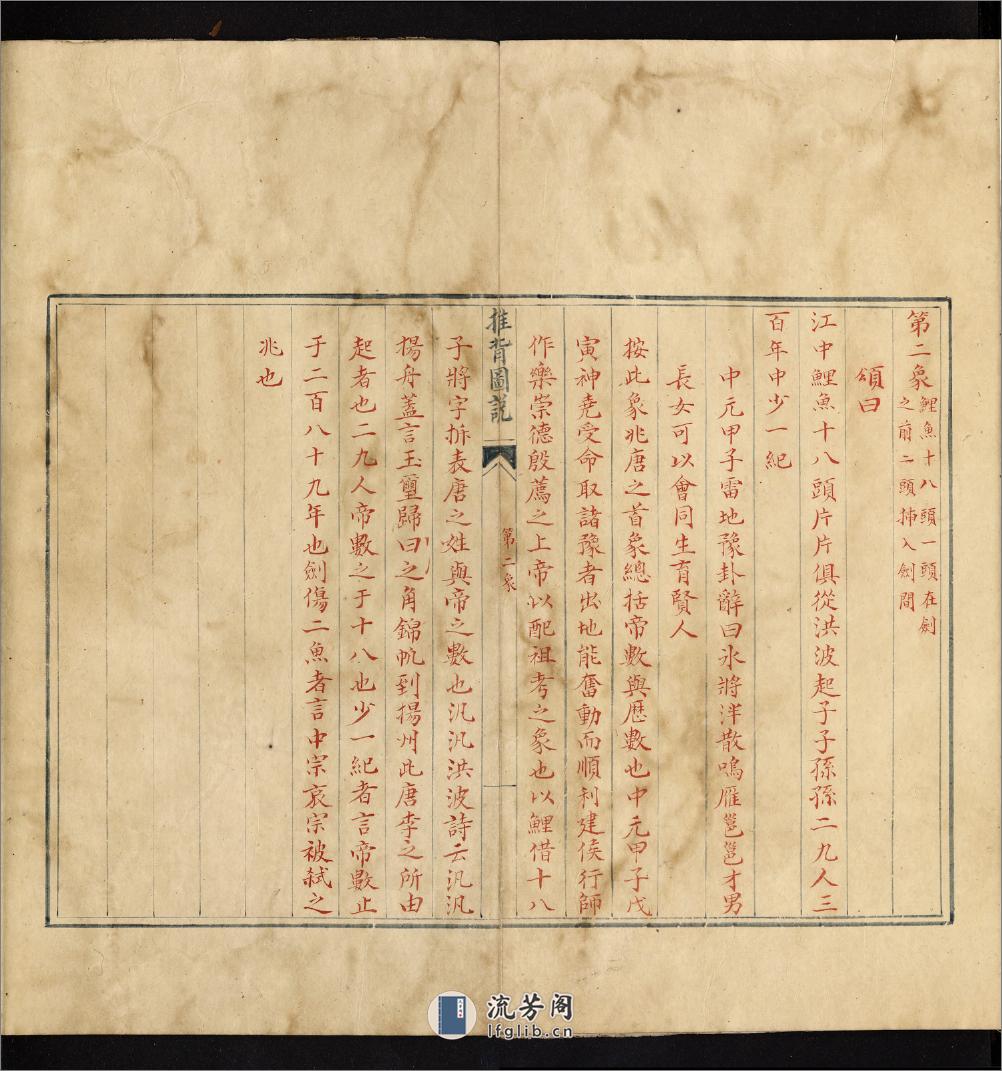 第二象 鯉魚十八頭一頭在劍
之前二頭揷入劍間
頌曰
江中鯉魚十八頭片片俱從洪波起子子孫孫二九人三
百年中少一紀
中元甲子雷地豫卦辭曰氷將泮散鳴雁邕邕才男
長女可以會同生育賢人
按此象兆唐之首象總括帝數與歷數也中元甲子戊
寅神堯受命取諸豫者出地能奮動而順利建侯行師
作樂崇德殷薦之上帝以配祖考之象也以鯉借十八
推背圖說
第二象
子將字拆表唐之姓與帝之數也汎汎洪波詩云汎汎
揚舟蓋言玉璽歸日之角錦帆到揚州此唐李之所由
起者也二九人帝數之于十八也少一紀者言帝數止
于二百八十九年也劍傷二魚者言中宗哀宗被弒之
兆也
流芳阁
lfglib.cn